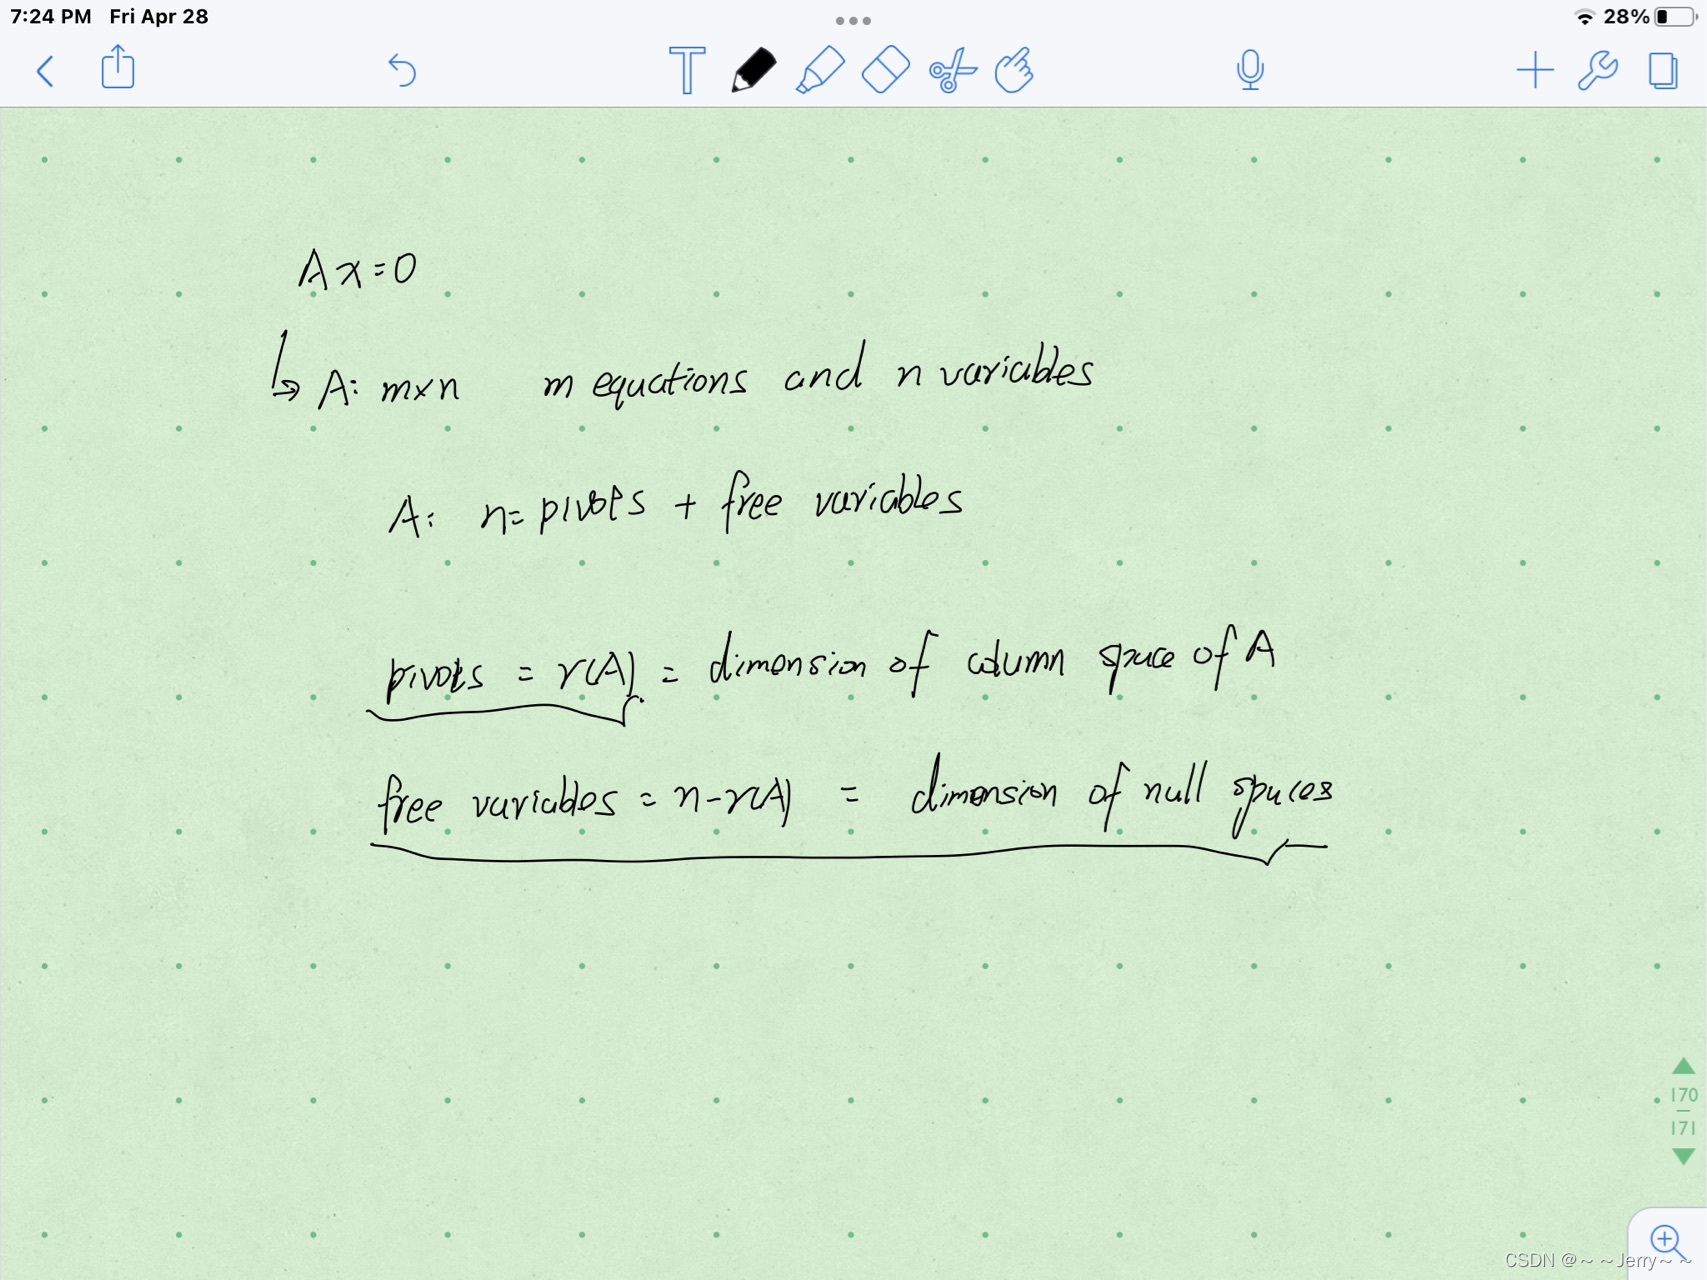 7:24 PM Fri Apr 28
28%
T
Ax=0
A: m×n m equations and n variables
A: n= pivots + free variables
pivots = r(A) = dimension of column space of A
free variables = n-r(A) = dimension of null spaces
170
171
CSDN @~ ~Jerry~ ~